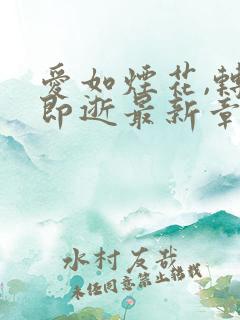 愛如煙花,轉
即逝最新章
水村友哉
未经同意禁止转载